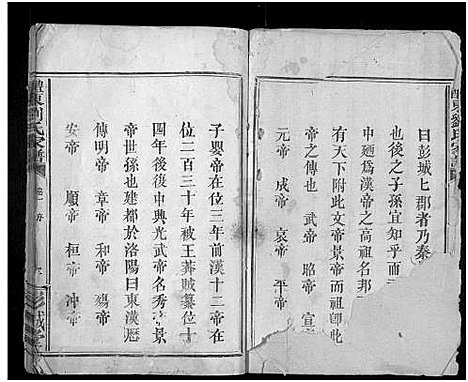 醴東劉氏家譜
曰彭城七郡者乃秦
也然後之子孫宜知乎
中廼爲漢帝之高祖名邦
有天下附此文帝景帝而祖
帝之傳也 武帝 昭帝 宣
元帝 成帝 哀帝 平帝
子嬰帝在位三年前漢十二帝在
位二百三十年被王莽賊篡位十
四年後復中興光武帝名秀景
帝世孫也建都於洛陽曰東漢歷
傳明帝 章帝 和帝 殤帝
安帝 順帝 桓帝 沖帝
醴東劉氏家譜 彭城堂